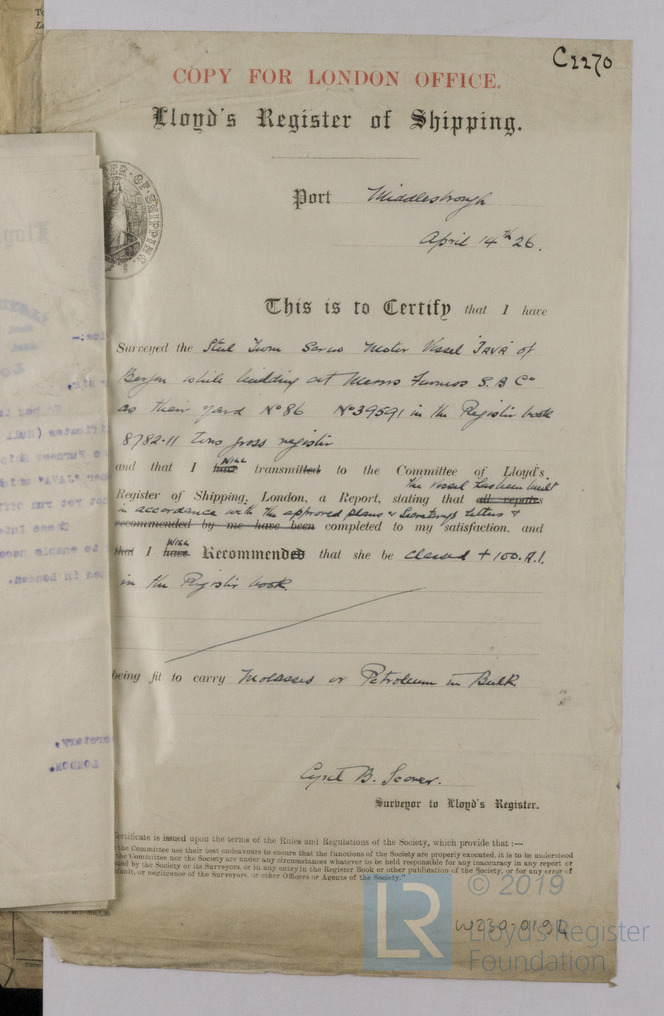 C2270
COPY FOR LONDON OFFICE.
Lloyd's Register of Shipping.
OF SHIPPING
Port Middlesbrough
April 14th 26.
This is to Certify that I have
Surveyed the Steel Twin Screw Motor Vessel "JAVA" of
Bergen while building at Messrs Furness S. B Co
as their yard No 86 No 39591 in the Register book
8782.11 tons gross register
and that I have WILL transmitted to the Committee of Lloyd's
Register of Shipping, London, a Report, stating that all repairs the vessel has been built
in accordance with the approved plans & Secretary's letters &
recommended by me have been completed to my satisfaction, and
that I have WILL Recommended that she be classed + 100.A.1.
in the Register book.
being fit to carry Molasses or Petroleum in Bulk
Cyril B.
Surveyor to Lloyd's Register.
Certificate is issued upon the terms of the Rules and Regulations of the Society, which provide that :—
the Committee use their best endeavours to ensure that the functions of the Society are properly executed, it is to be understood
the Committee nor the Society are under any circumstances whatever to be held responsible for any inaccuracy in any report or
issued by the Society or its Surveyors, or in any entry in the Register Book or other publication of the Society, or for any error of
default, or negligence of the Surveyors, or other Officers or Agents of the Society."
© 2019
W230-0192
LR
Lloyd's Register
Foundation